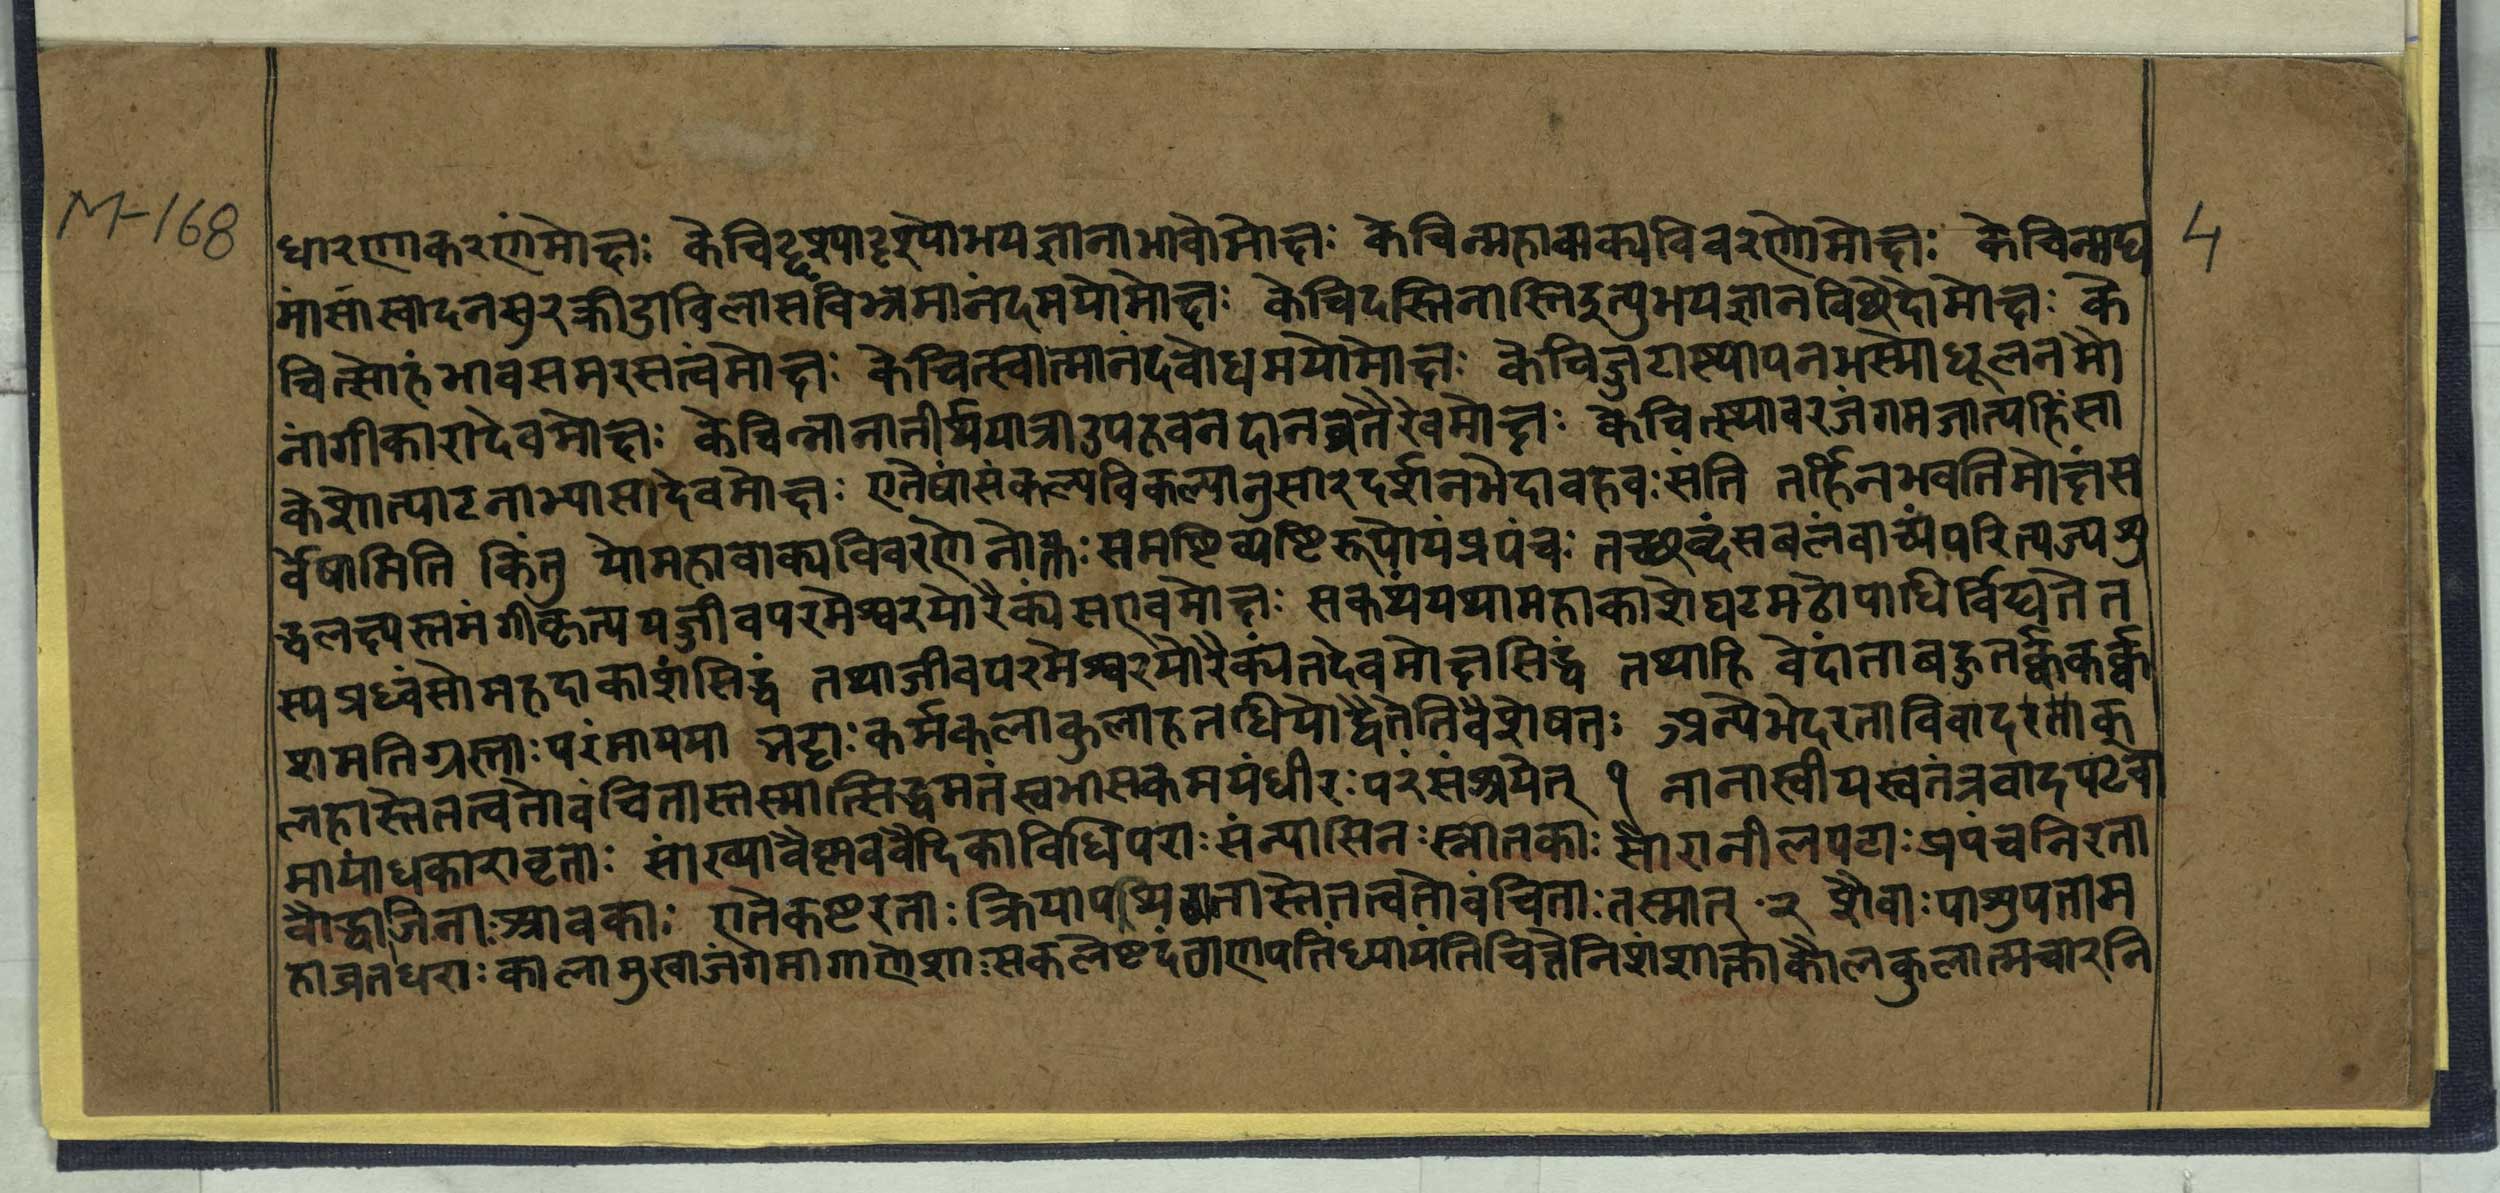 M-168
4
धारणाकरणंमोक्षः केचिद्दृश्यादृश्योभयज्ञानाभावोमोक्षः केचिन्महावाक्यविवरणोमोक्षः केचिन्मद्य
मांसास्वादनसुरक्रीडाविलासविभ्रमानंदमयोमोक्षः केचिदस्तिनास्तिइत्युभयज्ञानविछेदोमोक्षः के
चित्सोहंभावसमरसत्वंमोक्षः केचित्स्वात्मानंदबोधमयोमोक्षः केचिज्जटास्थापनभस्मोधूलनमौ
नांगीकारादेवमोक्षः केचिन्नानातीर्थयात्राजपहवनदानव्रतैरेवमोक्षः केचित्स्थावरजंगमजात्यहिंसा
केशोत्पाटनाभ्यासादेवमोक्षः एतेषांसंकल्पविकल्पानुसारदर्शनभेदाबहवःसंति तर्हिनभवतिमोक्षंस
र्वेषामिति किंतु योमहावाक्यविवरणेनोक्तःसमष्टिव्यष्टिरूपोयंप्रपंचः तच्छब्दंसबलंवाच्यंपरित्यज्यशु
द्धलक्ष्यस्तमंगीकृत्ययज्जीवपरमेश्वरयोरैक्यंसएवमोक्षः सकथंयथामहाकाशेघटमठोपाधिर्विद्यतेत
स्यप्रध्वंसोमहदाकाशंसिद्धं तथाजीवपरमेश्वरयोरैक्यंतदेवमोक्षसिद्धं तथाहि वेदांताबहुतर्क्ककर्क्क
शमतिग्रस्ताःपरंमायया भ्रट्टाःकर्मकलाकुलाहतधियोद्वैतेतिवैशेषतः अन्येभेदरताविवादरताक
लहास्तेतत्वतोवंचितास्तस्मात्सिद्धमतंस्वभासकमयंधीरःपरंसंश्रयेत् १ नानास्वीयस्वतंत्रवादपटवो
मायांधकारावृताः सांख्यावैष्णववैदिकाविधिपराःसंन्यासिनःस्नातकाः सौरानीलपटाःप्रपंचनिरता
बौद्धाजिनाःश्रावकाः एतेकष्टरताःक्रियापथिगतास्तेतत्वतोवंचिताःतस्मात् २ शैवाःपाशुपताम
हाव्रतधराःकालामुखाजंगमागाणेशाःसकलेष्टदंगणपतिंध्यायंतिचित्तेनिशंशाक्ताकौलकुलात्मचारनि